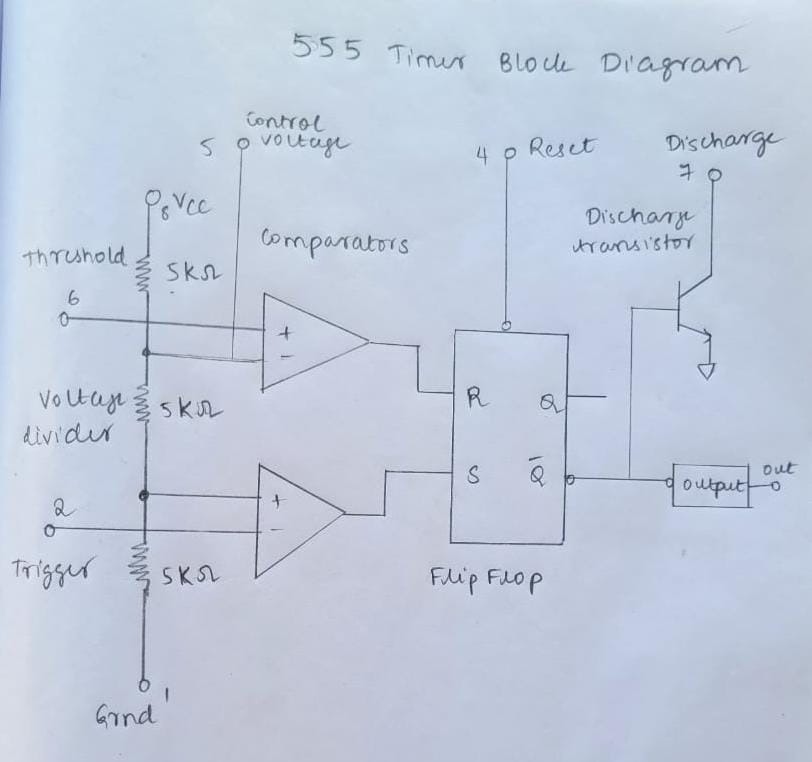 555 Timer Block Diagram
Control
5 voltage
4 Reset
Discharge
7
8 Vcc
Discharge
transistor
Threshold
5KΩ
Comparators
6
+
-
R
Q
Voltage
divider
5KΩ
S
Q̅
output
out
2
+
-
Trigger
5KΩ
Flip Flop
1
Grnd